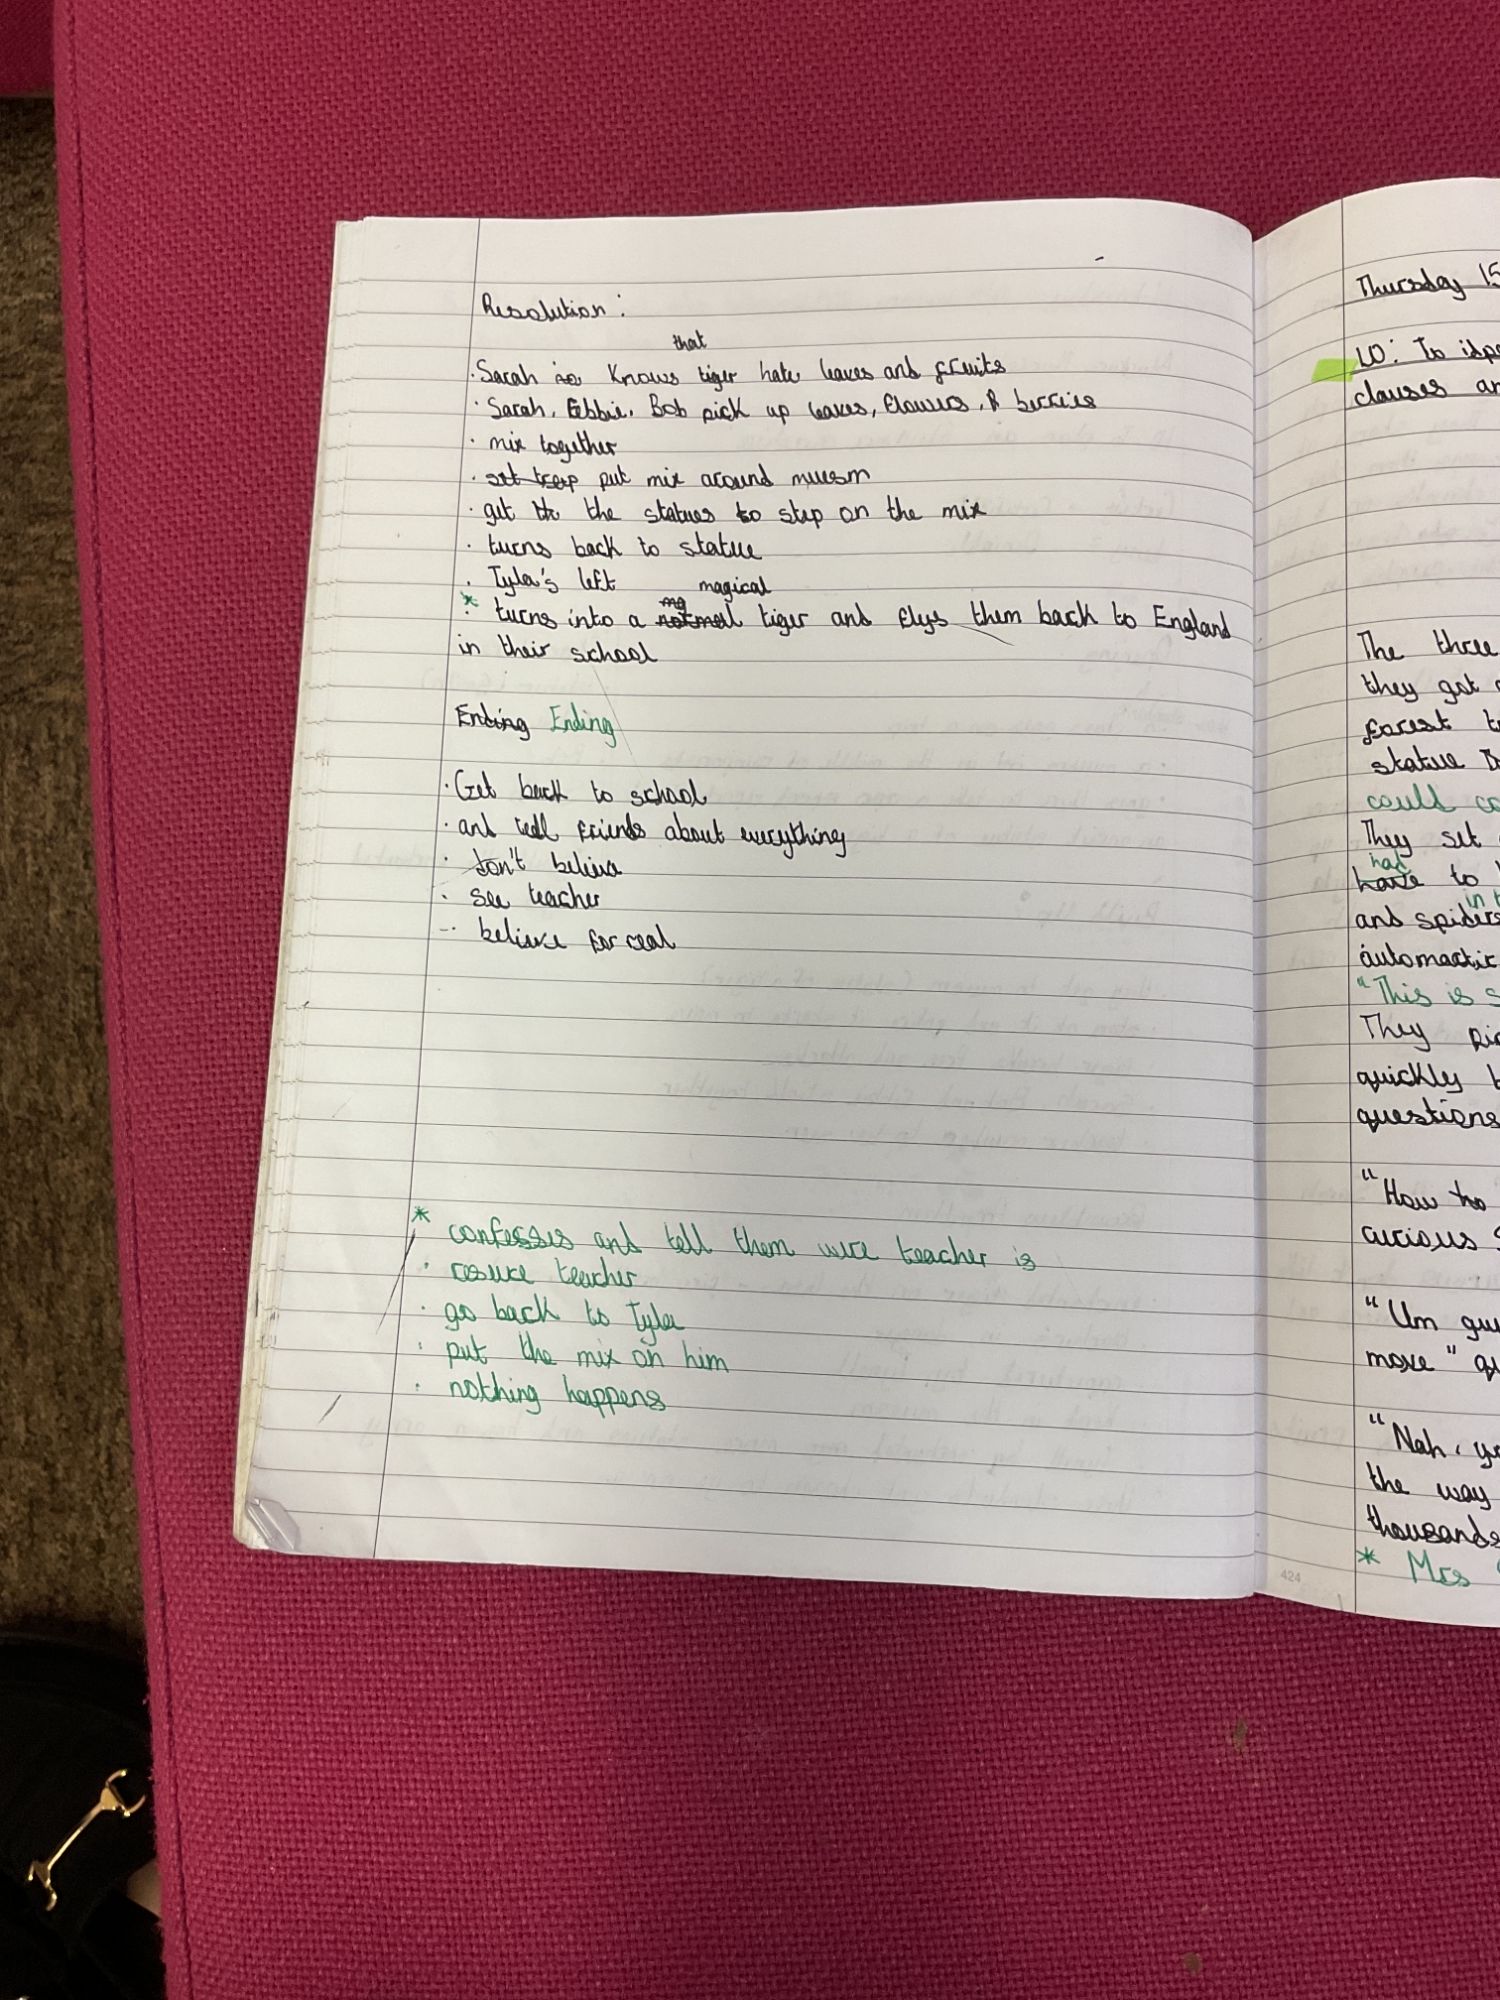 Resolution :
that
· Sarah is Knows tiger hate leaves and fruits
· Sarah, Ebbie, Bob pick up leaves, flowers, & berries
· mix together
· set trap put mix around muesm
· get the the statues to step on the mix
· turns back to statue
· Tyla's left magical
ma
* turns into a normal tiger and flys them back to England
in their school
Ending Ending
· Get back to school
· and tell friends about everything
· don't belive
· see teacher
· believe for real
* confesses and tell them were teacher is
· resuce teacher
· go back to Tyla
· put the mix on him
· nothing happens
Thursday 15
LO: To
clauses
The three
they got
forest
statue
could
They set
had
have to
in
and spiders
automactic
"This is
They
quickly
questions
"How to
curious
"Um
move"
"Nah,
the way
thousands
* Mrs
424